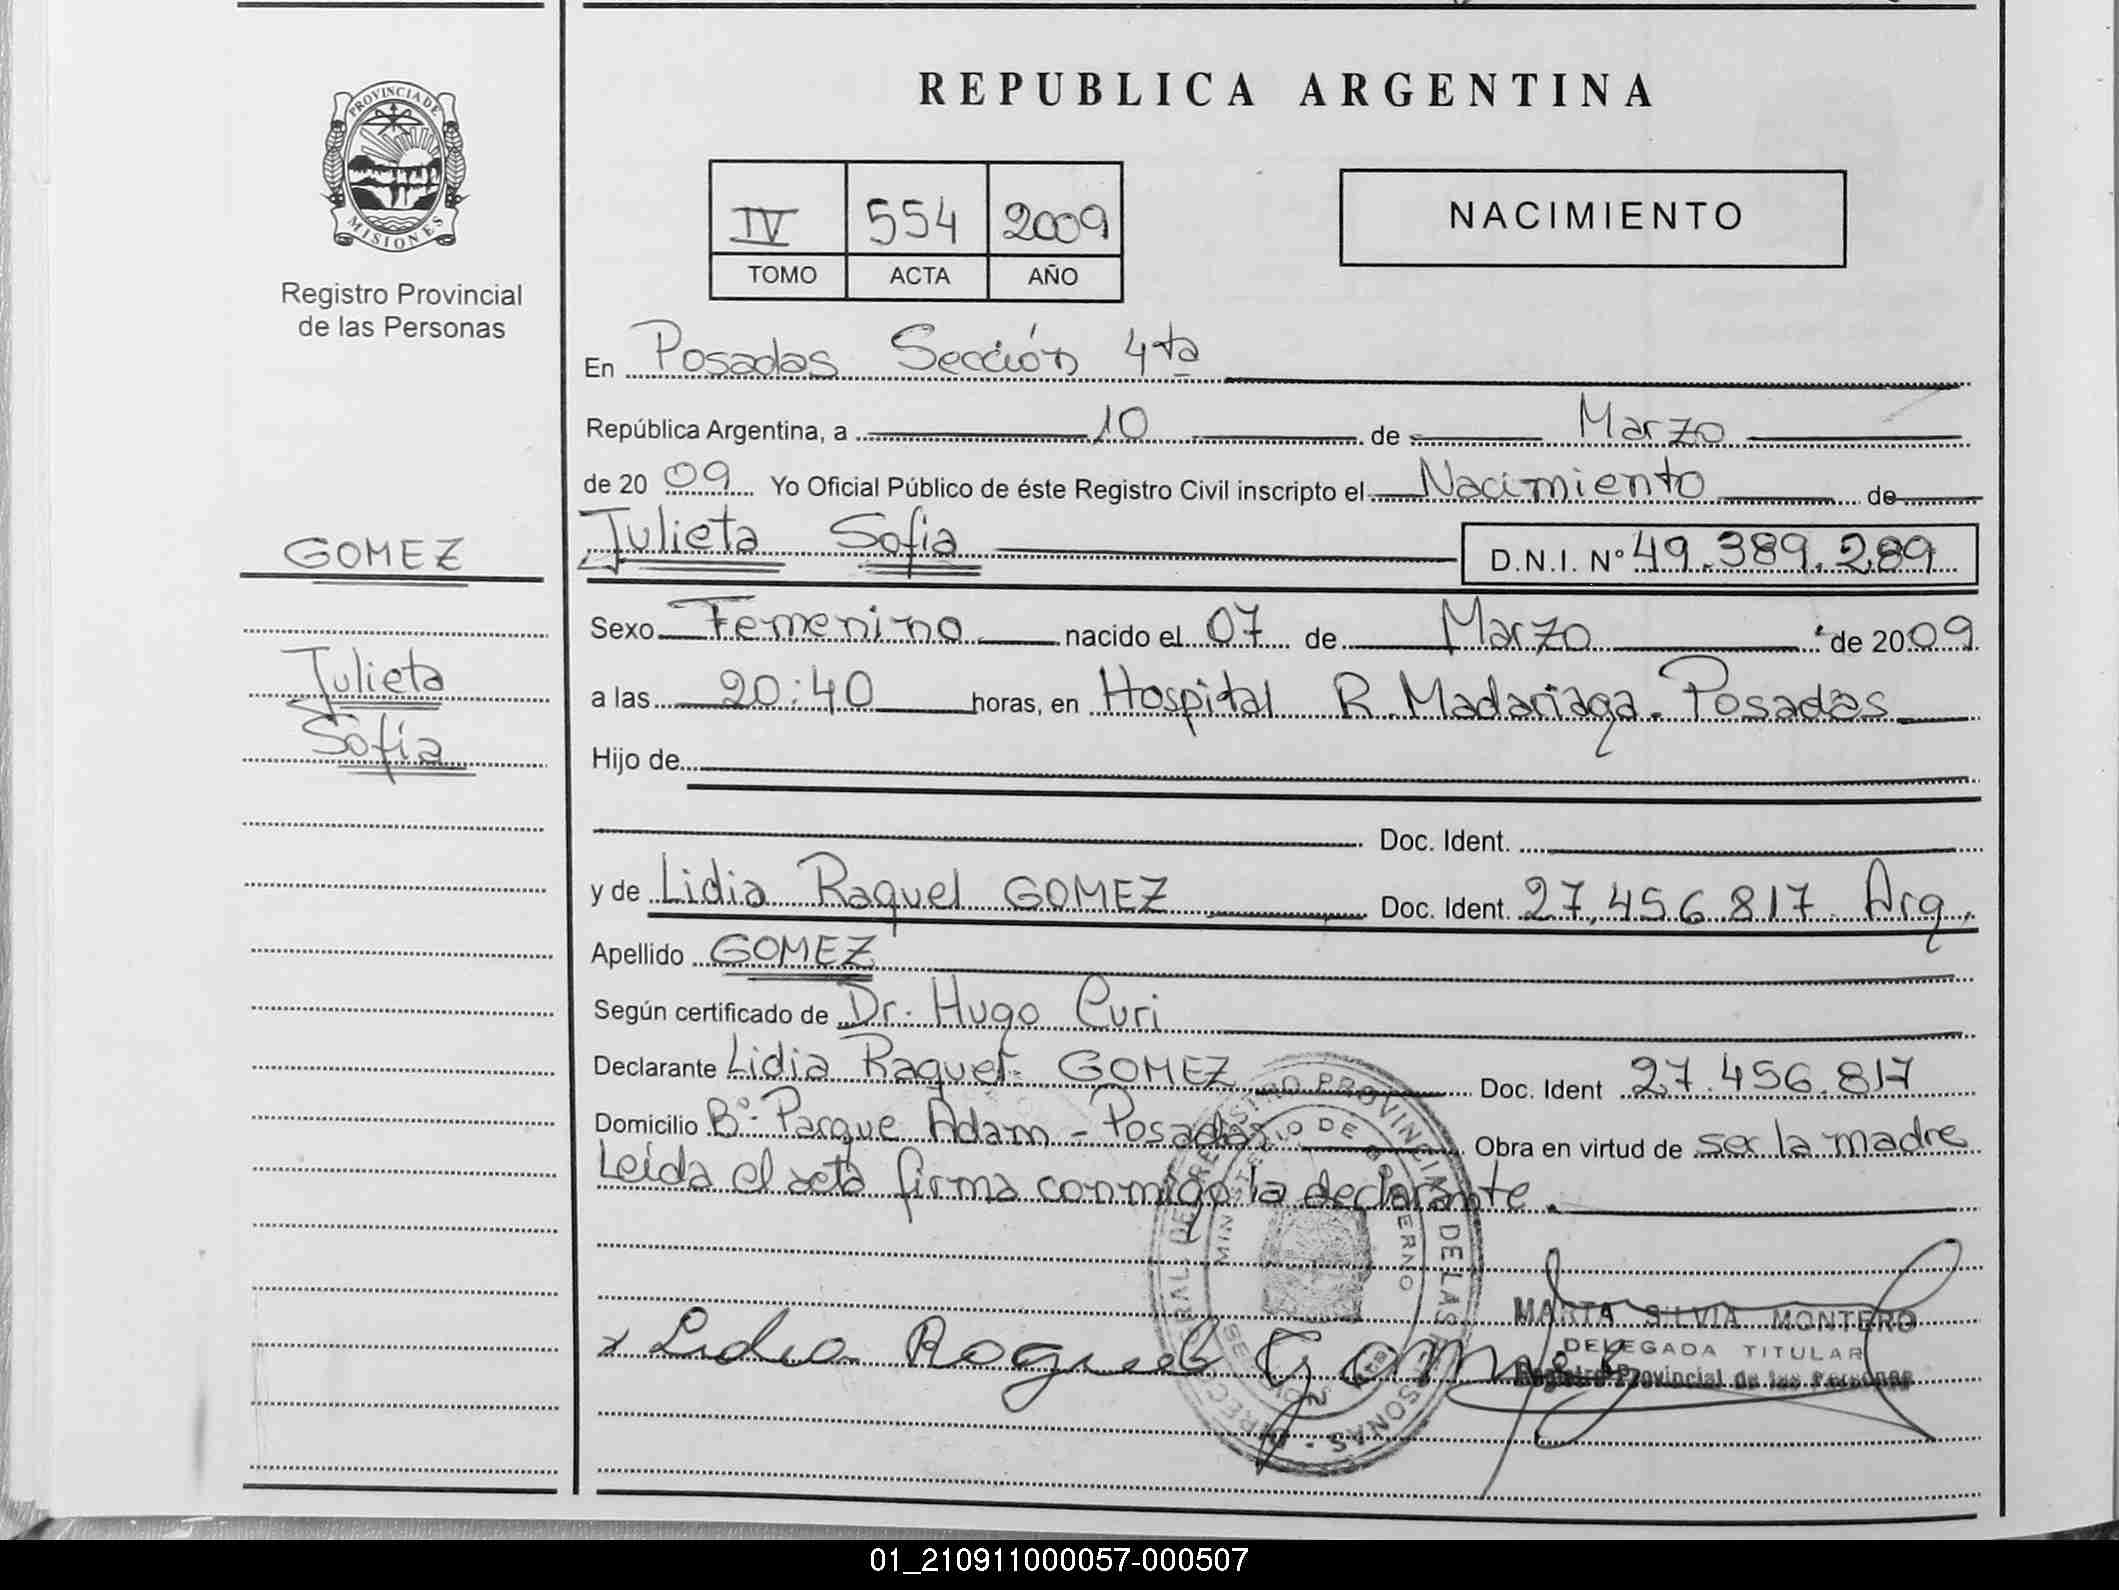 REPUBLICA ARGENTINA
PROVINCIA DE MISIONES
Registro Provincial
de las Personas
IV 554 2009
TOMO ACTA AÑO
NACIMIENTO
En Posadas Sección 4ta
República Argentina, a 10 de Marzo
de 2009 Yo Oficial Público de éste Registro Civil inscripto el Nacimiento de
GOMEZ
Julieta Sofia D.N.I. Nº 49.389.289
Sexo Femenino nacido el 07 de Marzo de 2009
Julieta
Sofia
a las 20:40 horas, en Hospital R. Madariaga. Posadas
Hijo de
Doc. Ident.
y de Lidia Raquel GOMEZ Doc. Ident. 27.456.817 Arg.
Apellido GOMEZ
Según certificado de Dr. Hugo Curi
Declarante Lidia Raquel GOMEZ Doc. Ident 27.456.817
Domicilio Bº Parque Adam - Posadas Obra en virtud de ser la madre
Leída el acta firma conmigo la declarante.
REGISTRO PROVINCIAL DE LAS PERSONAS
MINISTERIO DE GOBIERNO
MARTA SILVIA MONTERO
DELEGADA TITULAR
Registro Provincial de las Personas
x Lidia Raquel Gomez
01_210911000057-000507